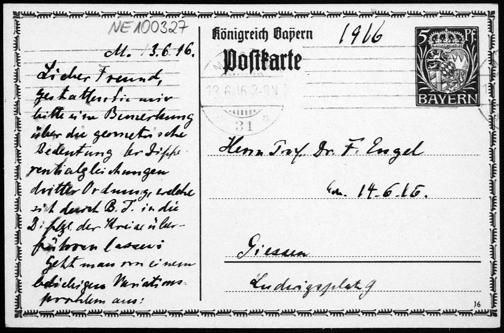 NE100327
M. 13.6.16.
Lieber Freund,
gestatten Sie mir
bitte eine Bemerkung
über die geometrische
Bedeutung der Diffe-
rentialgleichungen
dritter Ordnung, welche
sich durch B. T. in die
Difflgl. der Kreise über-
führen lassen:
Geht man von einem
beliebigen Variations-
problem aus:
Königreich Bayern
1916
Postkarte
5 Pf
BAYERN
13.6.16
31
Herrn Prof. Dr. F. Engel
14.6.16.
Giessen
Ludwigsplatz 9
16